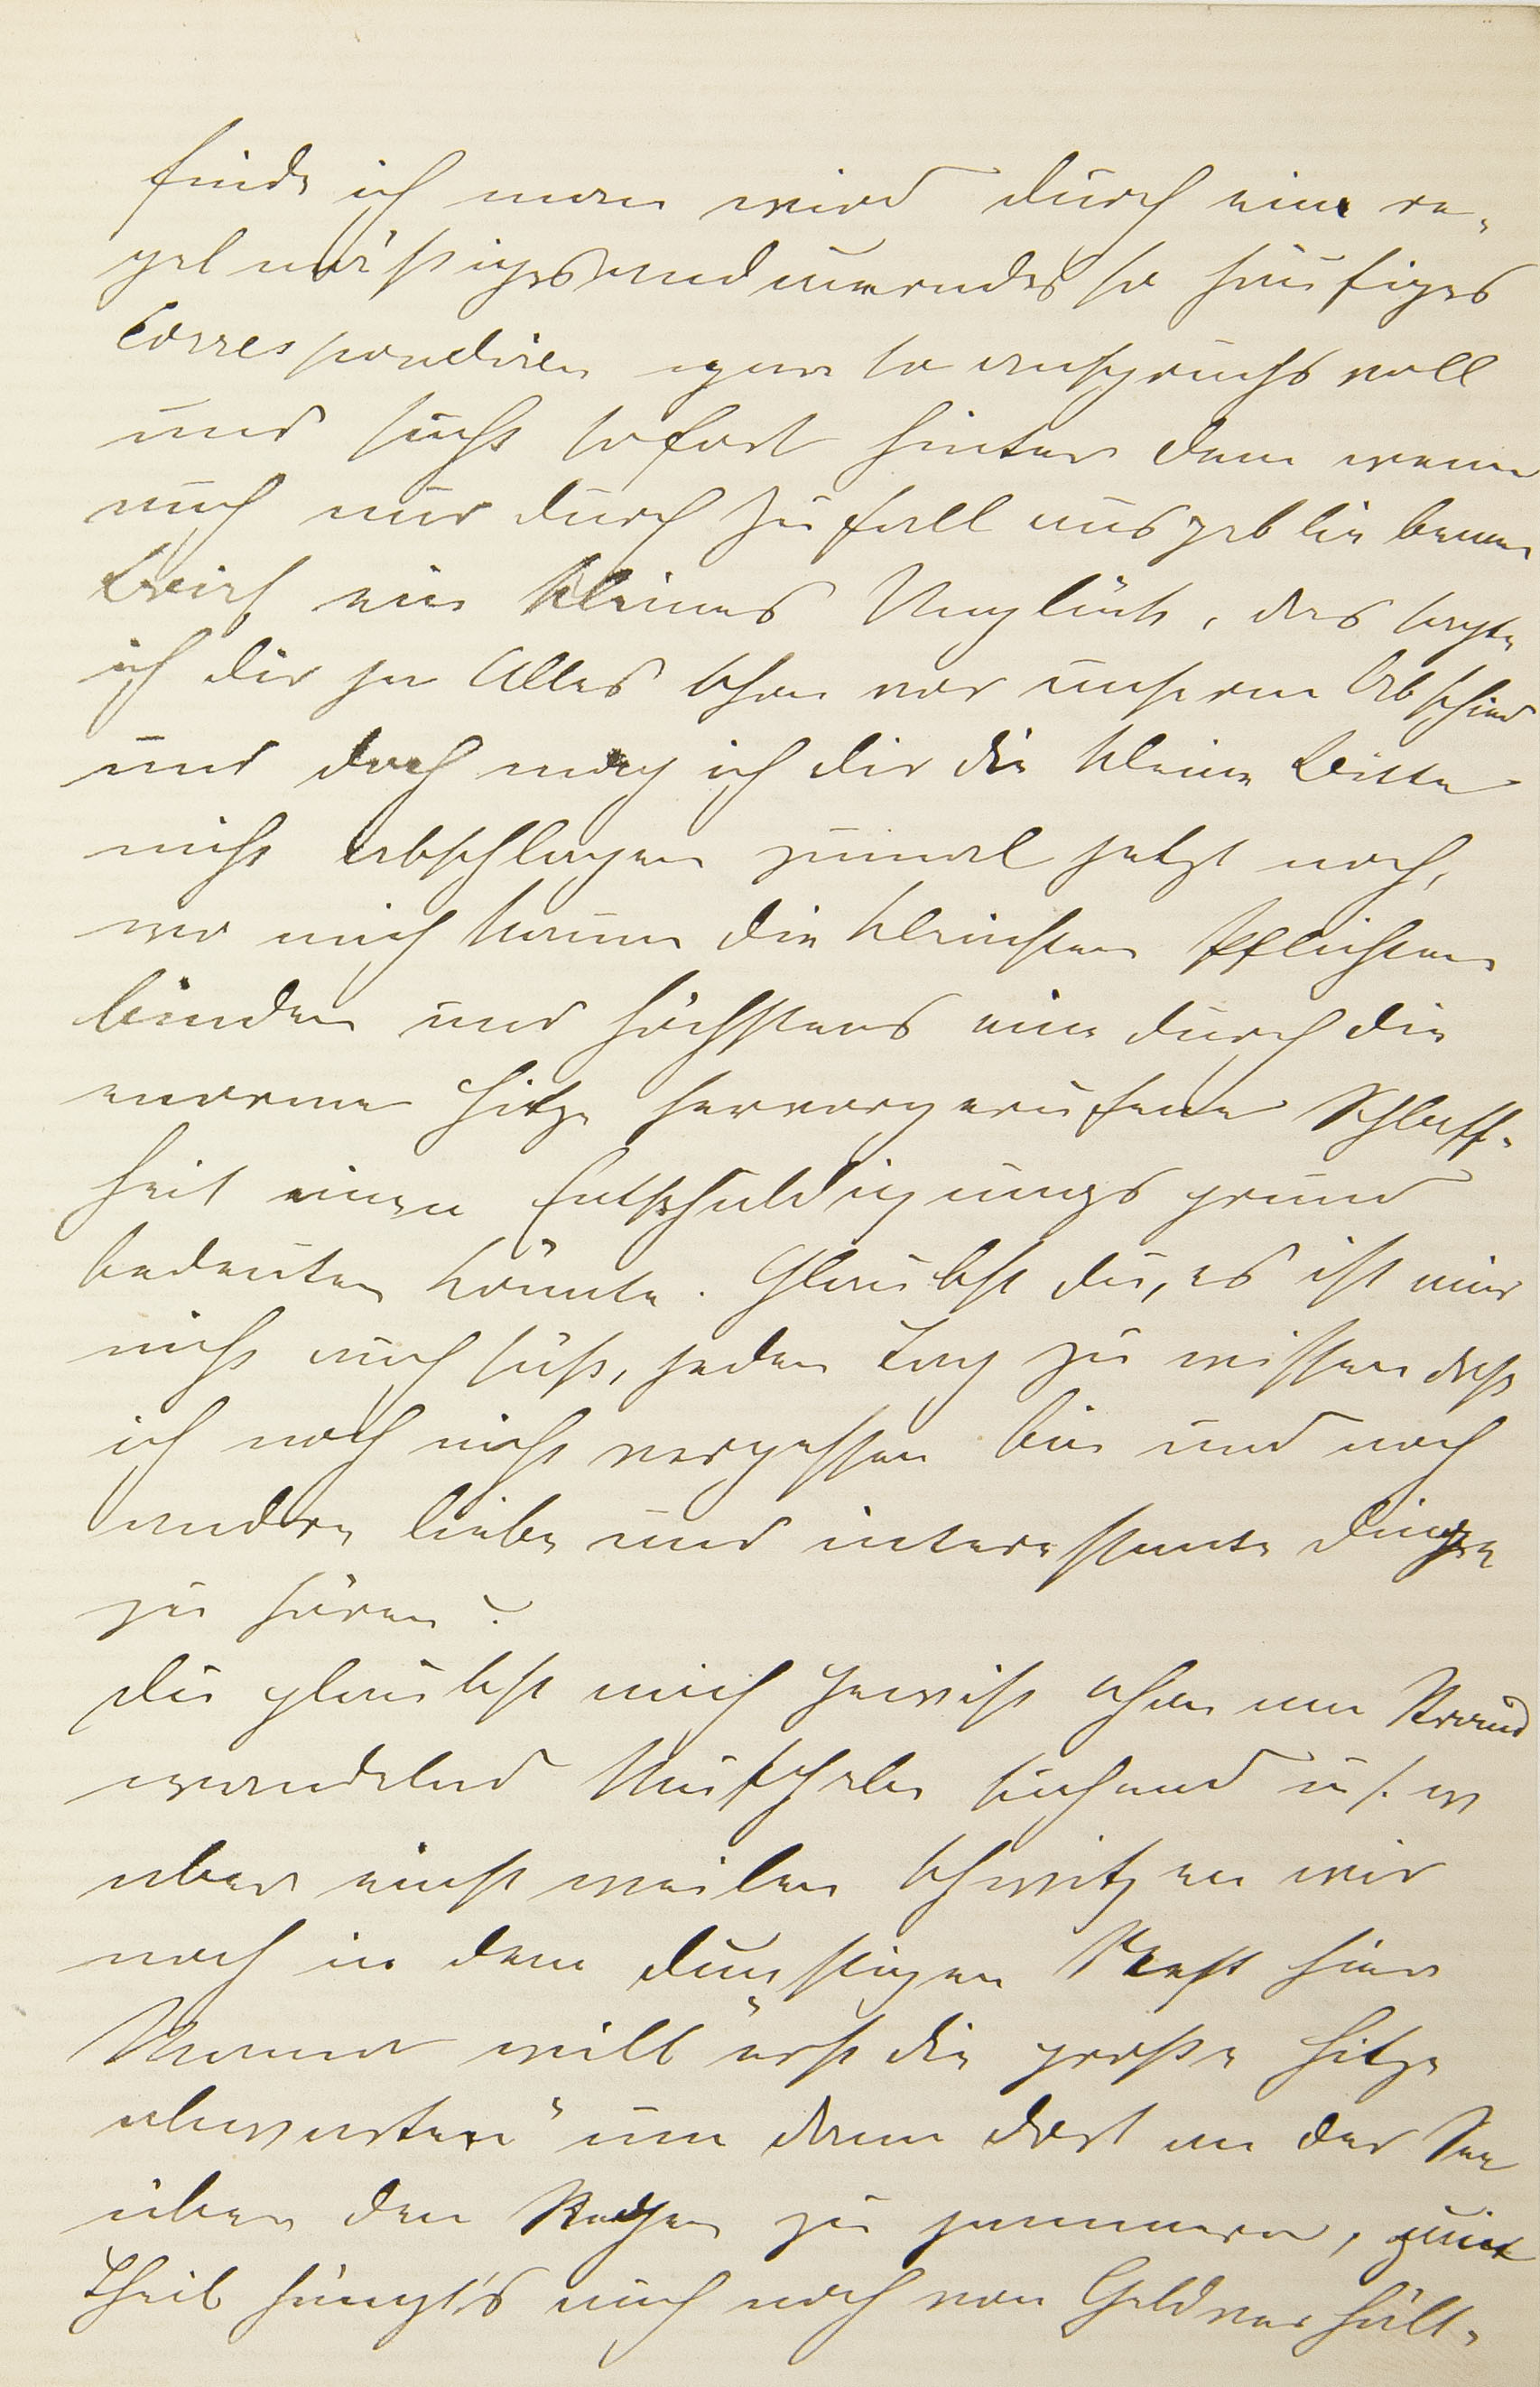 finde ich man wird durch eine re-
gelmäßiges und und so häufiges
Correspondiren ganz so anspruchsvoll
und sucht sofort hinter dem wenn
auch nur durch Zufall ausgebliebenen
Brief ein kleines Unglück, das sagte
ich dir ja Alles schon vor unserem Abschied
und doch mag ich dir die kleine Bitte
nicht abschlagen zumal jetzt noch,
wo mich kaum die kleinsten Pflichten
binden und höchstens eine durch die
enorme Hitze hervorgerufene Schlaff-
heit einen Entschuldigungsgrund
bedeuten könnte. Glaubst du, es ist mir
nicht auch süß, jeden Tag zu wissen daß
ich noch nicht vergessen bin und noch
andere liebe und interessante Dinge
zu hören?
Du glaubst mich gewiß schon am Strand
wandelnd Muscheln suchend u. s. w
aber einstweilen schwitzen wir
noch in dem dunstigen Nest hier
Mama will "erst die große Hitze
abwarten" um dann dort an der See
über den Regen zu jammern, zum
Theil hängt's auch noch von Geldverhält-